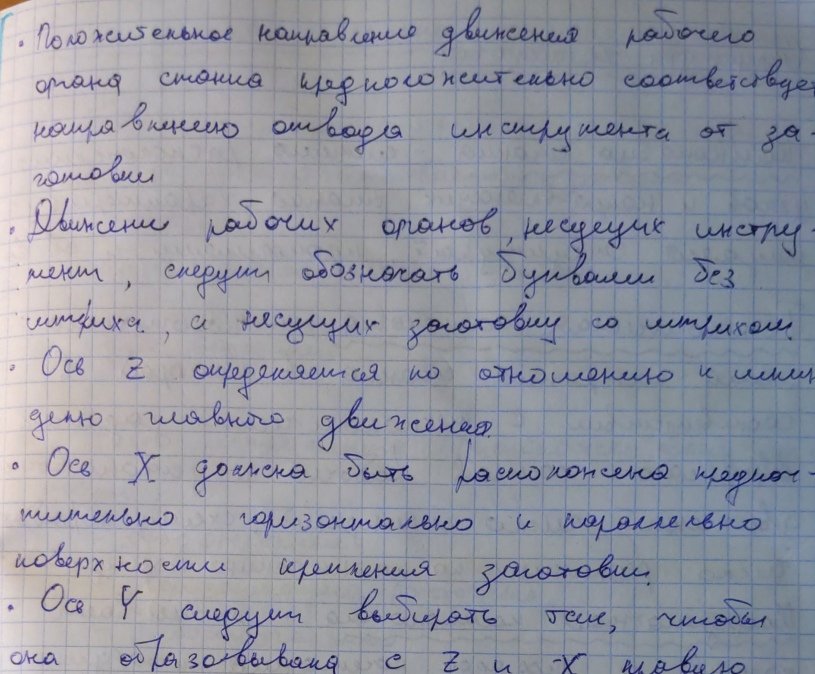 • Положительное направление движения рабочего
органа станка предположительно соответствует
направлению отвода инструмента от за-
готовки
• Движение рабочих органов, несущих инстру-
мент, следует обозначать буквами без
штриха, а несущих заготовку со штрихом.
• Ось Z определяется по отношению к шпин
делю главного движения.
• Ось X должна быть расположена предпоч-
тительно горизонтально и параллельно
поверхности крепления заготовки.
• Ось Y следует выбирать так, чтобы
она образовывала с Z и X правило